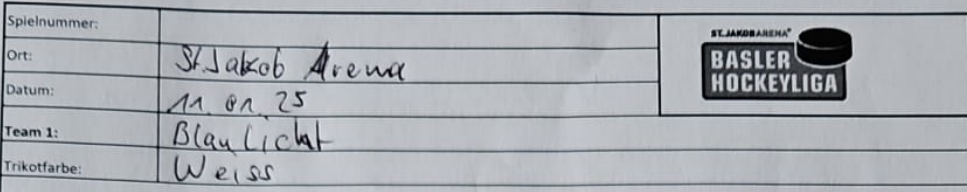 Spielnummer:
Ort: St. Jakob Arena
Datum: 11. 01. 25
Team 1: Blaulicht
Trikotfarbe: Weiss
ST. JAKOB ARENA
BASLER
HOCKEYLIGA